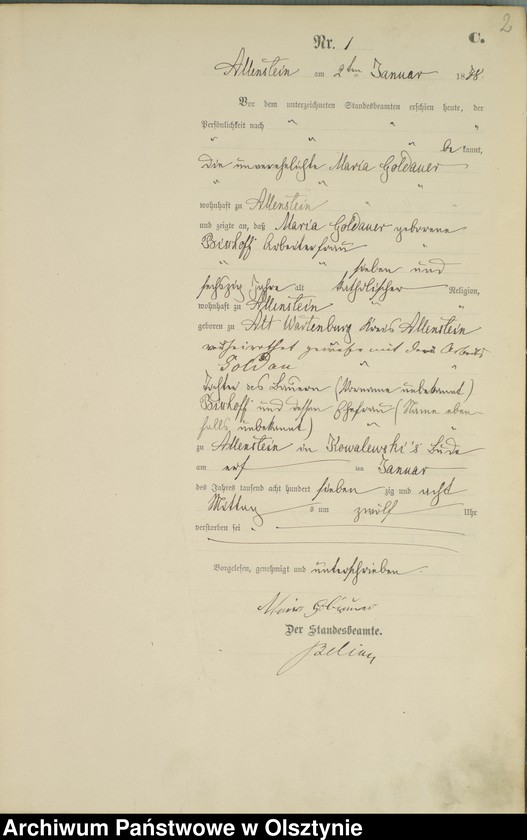 2
Nr. 1
C.
Allenstein am 2ten Januar 1878.
Vor dem unterzeichneten Standesbeamten erschien heute, der
Persönlichkeit nach
be kannt,
die unverehelichte Maria Goldauer
wohnhaft zu Allenstein
und zeigte an, daß Maria Goldauer geborene
Arbeiterfrau
sieben und
sechszig Jahre alt katholischer Religion,
wohnhaft zu Allenstein
geboren zu Alt Wartenburg Kreis Allenstein
verheirathet gewesen mit dem
Tochter des Bauern (Vorname unbekannt)
und dessen Ehefrau (Name eben-
falls unbekannt)
zu Allenstein in Kowalewski's Bude
am ersten Januar
des Jahres tausend acht hundert sieben zig und acht
Mittags um zwölf Uhr
verstorben sei.
Vorgelesen, genehmigt und unterschrieben.
Der Standesbeamte.
Belian
Archiwum Państwowe w Olsztynie